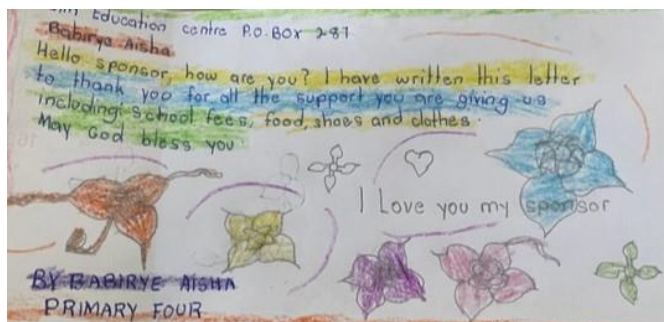 Education centre P.O.BOX 287
Babirye Aisha
Hello sponsor, how are you? I have written this letter
to thank you for all the support you are giving us
including: school fees, food, shoes and clothes.
May God bless you
I Love you my sponsor
BY BABIRYE AISHA
PRIMARY FOUR